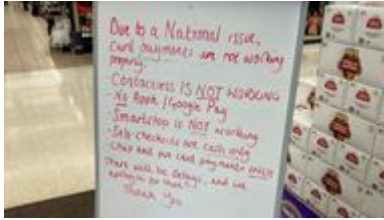 Due to a National issue,
card payments are not working
properly.
- Contactless IS NOT WORKING
- No Apple / Google Pay
- Smartshop is NOT working
- Self-checkouts are cash only
- Chip and pin card payments ONLY!
There will be delays, and we
apologise for that.
Thank you